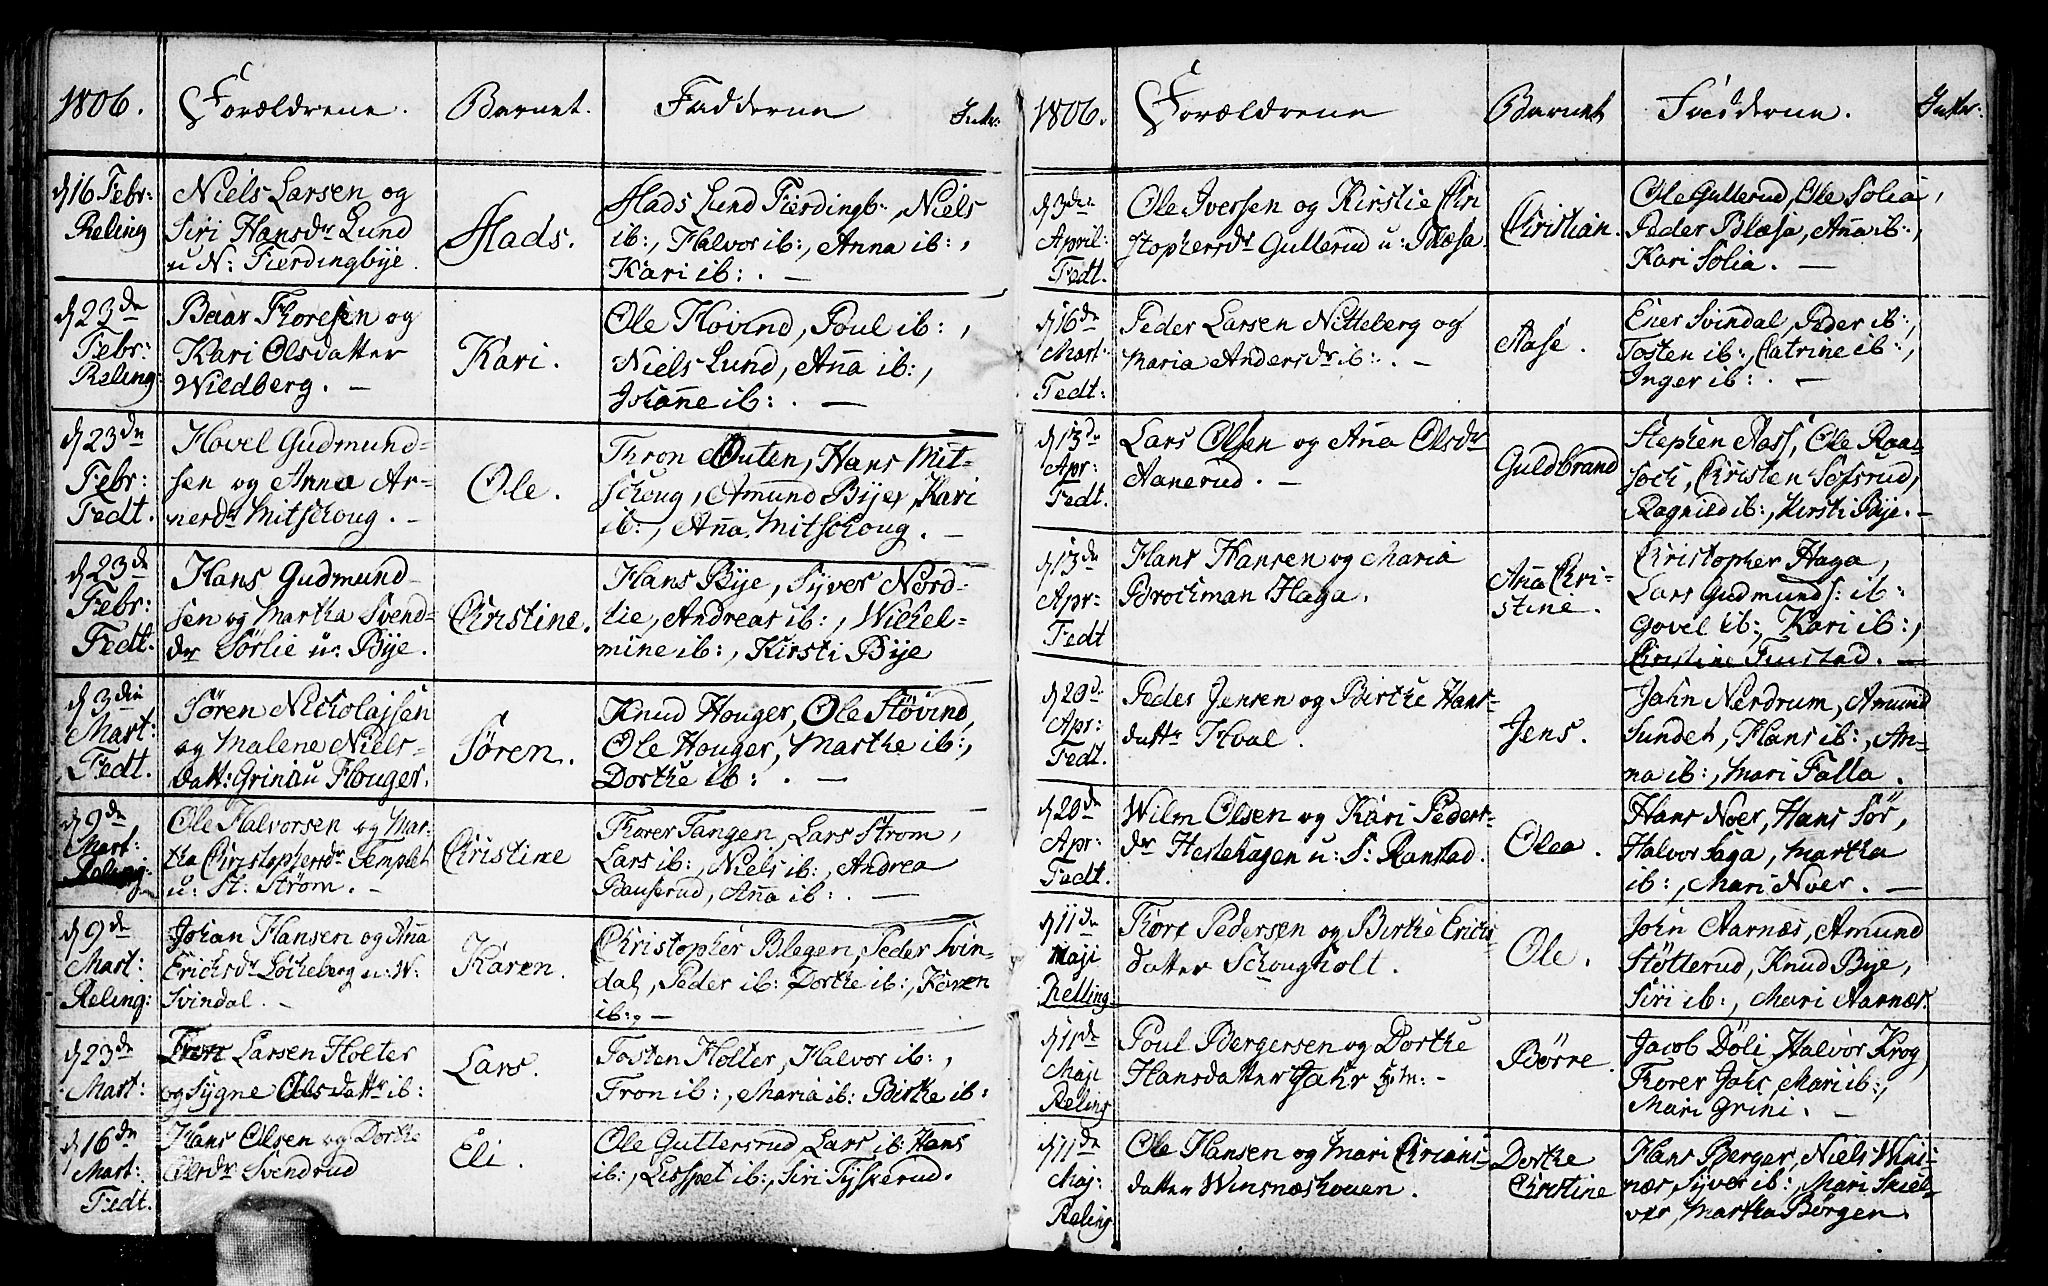 1806. Forældrene. Barnet. Fadderne Intr:
d 16 Febr: Reling
Niels Larsen og
Siri Hansdr Lund
u N: Fierdingbye.
Mads.
Mads Lund Fierdingb:, Niels
ib:, Halvor ib:, Anna ib:,
Kari ib: . —
d 23de Febr: Reling
Baar Thoresen og
Kari Olsdatter
Wildberg. —
Kari.
Ole Hovind, Poul ib:,
Niels Lund, Aña ib:,
Johañe ib: . —
d 23de Febr: Fedt.
Hovel Gudmund-
sen og Anna Ar-
nerdr Mitschoug. —
Ole.
Thron Outen, Hans Mit-
schoug, Amund Bije, Kari
ib:, Aña Mitschoug. —
d 23de Febr: Fedt.
Hans Gudmund-
sen og Martha Svend-
dr Sørlie u: Bije.
Christine.
Hans Bije, Syver Nord-
lie, Andreas ib:, Wilhel-
mine ib:, Kirsti Bije
d 3die Mart: Fedt.
Søren Nicholajsen
og Malene Niels-
datt: Grini u Houger.
Søren.
Knud Houger, Ole Støvind,
Ole Houger, Marthe ib:,
Dorthe ib: . —
d 9de Mart: Reling:
Ole Halvorsen og Mar-
tha Christophersdr Templet
u: St: Strøm. —
Christine
Thorer Tangen, Lars Strøm,
Lars ib:, Niels ib:, Andrea
Bauserud, Aña ib: . —
d 9de Mart: Reling:
Johan Hansen og Aña
Erichsdr Løcheberg u: W:
Svindal. —
Karen.
Christopher Blegen, Peder Svin-
dal, Peder ib: Dorthe ib:, Karen
ib:, —
d 23de Mart:
Tron Larsen Holter
og Sygne Olsdattr ib:
Lars.
Tosten Holter, Halvor ib:,
Tron ib:, Maria ib: Birthe ib:
d 16de Mart: Fedt.
Hans Olsen og Dorthe
Olsdr Svendrud
Eli.
Ole Guttersrud, Lars ib: Hans
ib:, Lisspet ib:, Siri Tyskerud.
1806. Forældrene Barnet Fadderne. Intr:
d 3die April: Fedt.
Ole Iversen og Kirstie Chri
stophersdr Gullerud u: Blæsa.
Christian.
Ole Gullerud, Ole Solia,
Peder Blæsa, Aña ib:,
Kari Solia. —
d 16de Mart: Fedt:
Peder Larsen Nitteberg og
Maria Andersdr ib: . —
Aase.
Ener Svindal, Peder ib:,
Tosten ib:, Catrine ib:,
Inger ib: . —
d 13de Apr: Fedt.
Lars Olsen og Aña Olsdr
Aanerud. —
Guldbrand
Stephen Aass, Ole Raa-
soch, Christen Sofsrud,
Ragnild ib:, Kirsti Bije. —
d 13de Apr: Fedt
Hans Hansen og Maria
Brochman Haga.
Aña Chri-
stine.
Christopher Haga,
Lars Gudmunds: ib:
Govel ib:, Kari ib:,
Christine Tustad. —
d 20de Apr: Fedt.
Peder Jensen og Birthe Hans-
dattr Hval.
Jens.
Jahn Nerdrum, Amund
Sundet, Hans ib:, An-
na ib:, Mari Falla.
d 20de Apr: Fedt.
Wilm Olsen og Kari Peders-
dr Hestehagen u: S: Ranstad.
Olea.
Hans Noer, Hans Sør,
Halvor Saga, Martha
ib:, Mari Noer. —
d 11de Maji Relling
Thore Pedersen og Birthe Erichs
datter Schougholt.
Ole.
John Aarnæs, Amund
Støtterud, Knud Bije,
Siri ib:, Mari Aarnæs.
d 11de Maji Reling
Poul Bergersen og Dorthe
Hansdatter Jahr Hjm: —
Børre.
Jacob Döli, Halvor Krog,
Thorer Jahr, Mari ib:,
Mari Grini. —
d 11de Maj: Reling
Ole Hansen og Mari Christi-
datter Winsnæshouen.
Dorthe
Christine
Hans Berger, Niels Wins-
nær, Syver ib:, Mari Skiel-
ver, Martha Børgen.